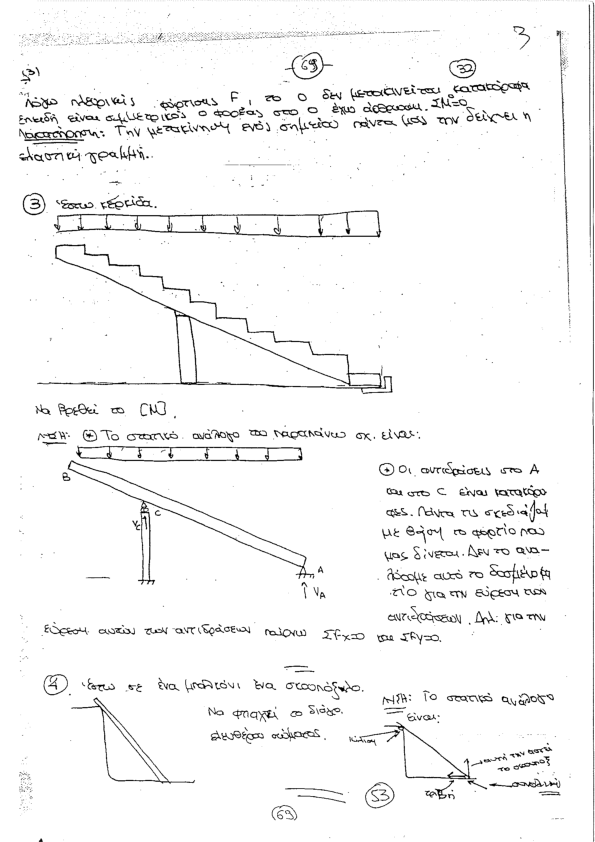 3
(3)
69
32
Λόγω πλευρικής φόρτισης F, το Ο δεν μετακινείται κατακόρυφα
Επειδή είναι συμμετρικός ο φορέας στο Ο έχω άρθρωση. ΣΜ=0
Παρατήρηση: Την μετακίνηση ενός σημείου πάντα μας την δείχνει η
ελαστική γραμμή.
③ Έστω κερκίδα.
Να βρεθεί το [M].
ΛΥΣΗ: ⊛ Το στατικό ανάλογο του παραπάνω σχ. είναι:
B
C
Vc
A
VA
⊛ Οι αντιδράσεις στο Α
και στο C είναι κατακόρυ
φες. Πάντα τις σχεδιάζω
με βάση το φορτίο που
μας δίνεται. Δεν το ανα-
λύουμε αυτό το δοσμένο φορ
τίο για την εύρεση των
αντιδράσεων. Δηλ. για την
εύρεση αυτών των αντιδράσεων παίρνω ΣFx=0 και ΣFy=0.
④ Έστω σε ένα μπαλκόνι ένα σκουπόξυλο.
Να φτιαχτεί το διάγρ.
ελευθέρου σώματος.
ΛΥΣΗ: Το στατικό ανάλογο
είναι:
αυτή την ασκεί
το σκουπόξ
τριβή
συνολική
53
69